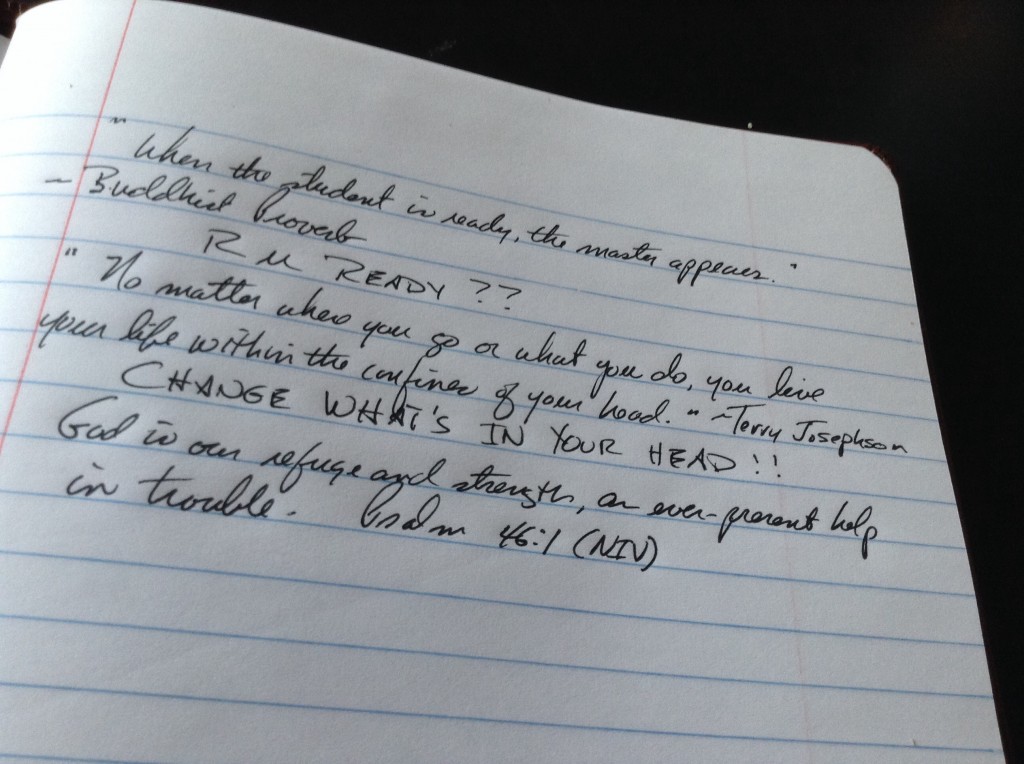 "When the student is ready, the master appears."
- Buddhist Proverb
R U READY ??
"No matter where you go or what you do, you live
your life within the confines of your head." - Terry Josephson
CHANGE WHAT'S IN YOUR HEAD !!
God is our refuge and strength, an ever-present help
in trouble. Psalm 46:1 (NIV)